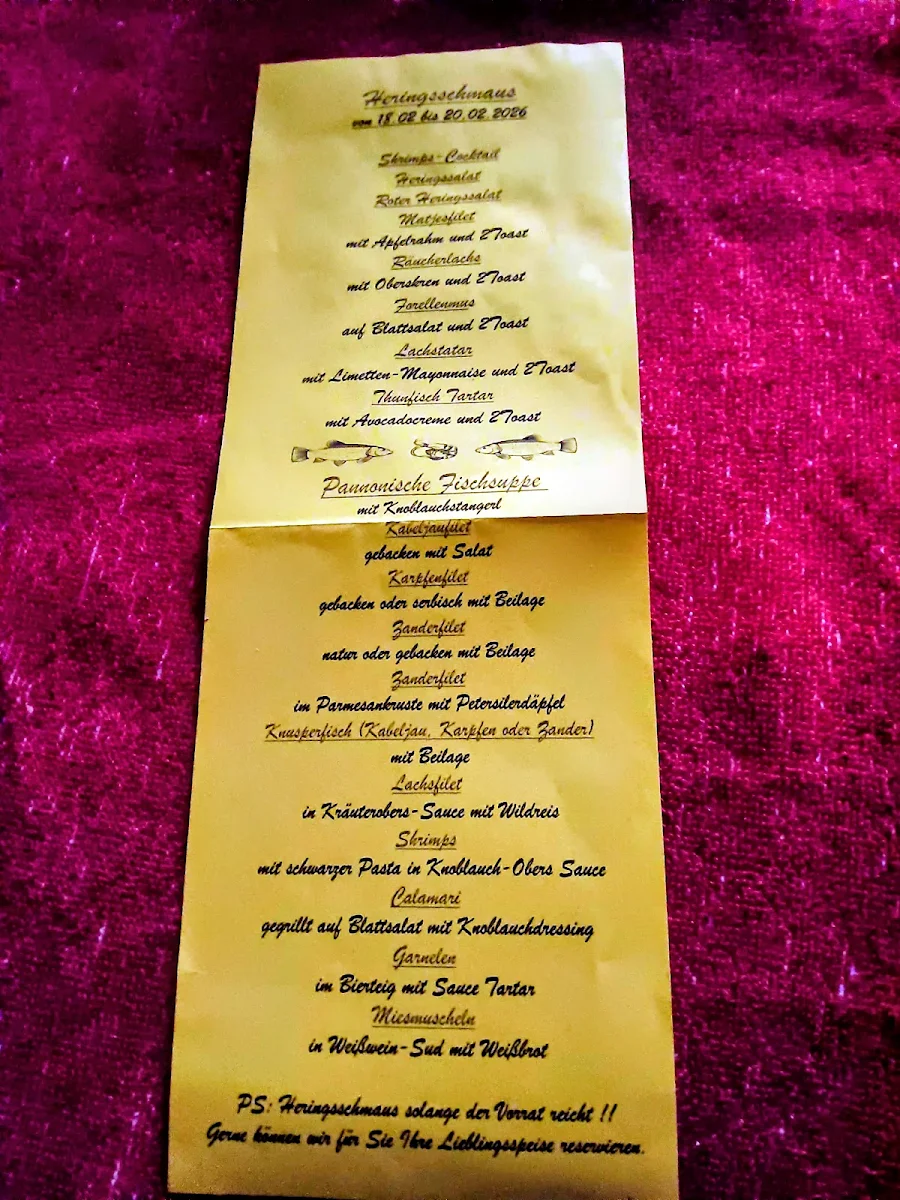 Heringsschmaus
von 18.02 bis 20.02.2026
Shrimps-Cocktail
Heringssalat
Roter Heringssalat
Matjesfilet
mit Apfelrahm und 2Toast
Räucherlachs
mit Oberskren und 2Toast
Forellenmus
auf Blattsalat und 2Toast
Lachstatar
mit Limetten-Mayonnaise und 2Toast
Thunfisch Tartar
mit Avocadocreme und 2Toast
Pannonische Fischsuppe
mit Knoblauchstangerl
Kabeljaufilet
gebacken mit Salat
Karpfenfilet
gebacken oder serbisch mit Beilage
Zanderfilet
natur oder gebacken mit Beilage
Zanderfilet
im Parmesankruste mit Petersilerdäpfel
Knusperfisch (Kabeljau, Karpfen oder Zander)
mit Beilage
Lachsfilet
in Kräuterobers-Sauce mit Wildreis
Shrimps
mit schwarzer Pasta in Knoblauch-Obers Sauce
Calamari
gegrillt auf Blattsalat mit Knoblauchdressing
Garnelen
im Bierteig mit Sauce Tartar
Miesmuscheln
in Weißwein-Sud mit Weißbrot
PS: Heringsschmaus solange der Vorrat reicht !!
Gerne können wir für Sie Ihre Lieblingsspeise reservieren.